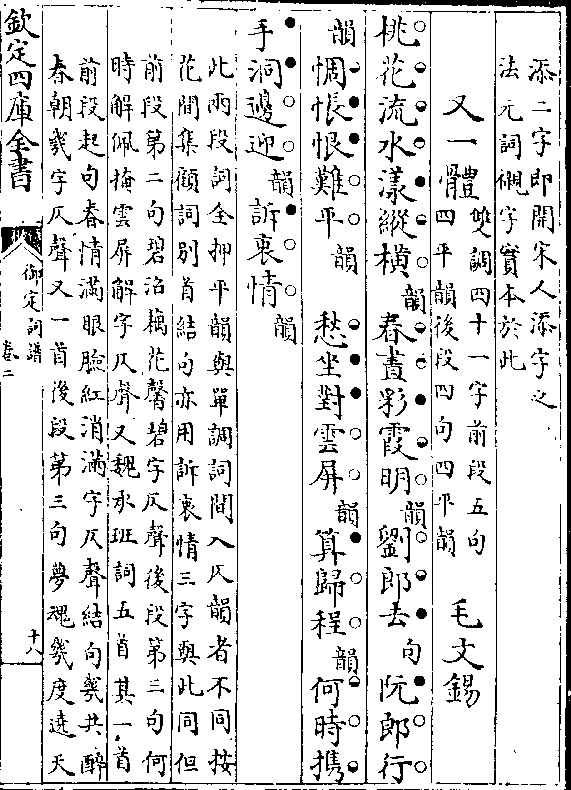 添二字即開宋人添字之
法元詞襯字實本於此
又一體 雙調四十一字前段五句
四平韻後段四句四平韻 毛文錫
桃花流水漾縱橫韻春晝彩霞明韻劉郎去句阮郎行
韻惆悵恨難平韻 愁坐對雲屏韻算歸程韻何時攜
手洞邊迎韻訴衷情韻
此兩段詞全押平韻與單調詞間入仄韻者不同按
花間集顧詞別首結句亦用訴衷情三字與此同但
前段第二句碧沼藕花馨碧字仄聲後段第三句何
時解佩掩雲屏解字仄聲又魏承班詞五首其一首
前段起句春情滿眼臉紅消滿字仄聲結句幾共醉
春朝幾字仄聲又一首後段第三句夢魂幾度遶天
欽定四庫全書
御定詞譜
卷二
十八